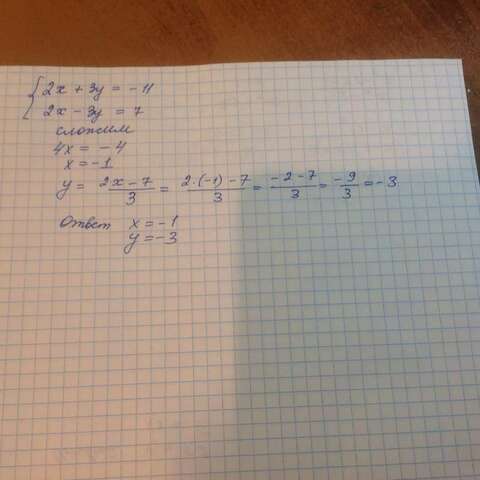 { 2x + 3y = -11
2x - 3y = 7
сложим
4x = -4
x = -1
y = (2x - 7)/3 = (2·(-1) - 7)/3 = (-2 - 7)/3 = -9/3 = -3
Ответ x = -1
y = -3